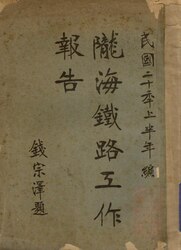 民國二十年上半年編
隴海鐵路工作
報告
錢宗澤題